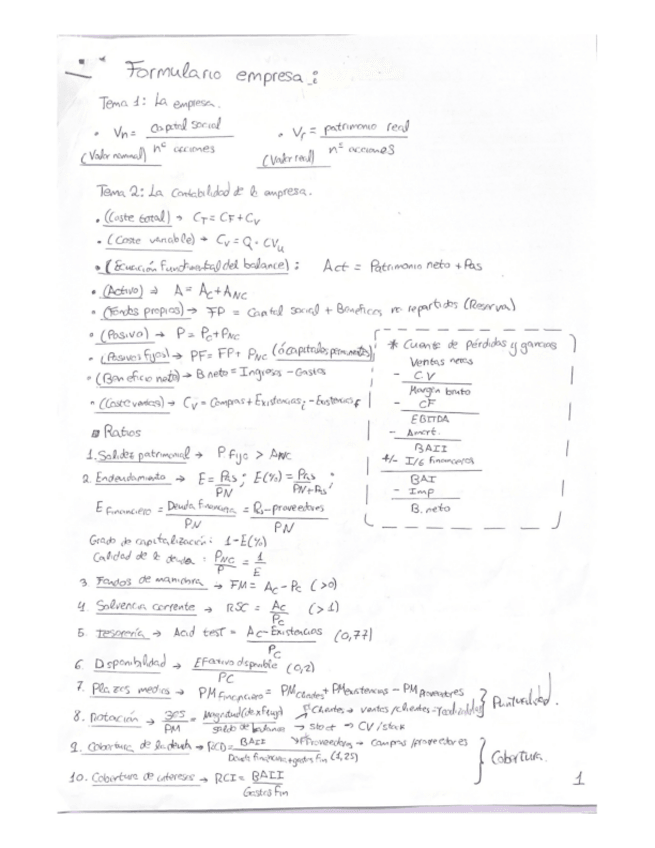 Formulario empresa:
Tema 1: La empresa.
• Vn = Capital social / nº acciones
(Valor nominal)
• Vr = patrimonio real / nº acciones
(Valor real)
Tema 2: La Contabilidad de la empresa.
• (Coste total) → CT = CF + CV
• (Coste variable) → CV = Q · CVu
• (Ecuación fundamental del balance): Act = Patrimonio neto + Pas
• (Activo) ⇒ A = AC + ANC
• (Fondos propios) → FP = Capital social + Beneficios no repartidos (Reserva)
• (Pasivo) → P = PC + PNC
• (Pasivos fijos) → PF = FP + PNC (ó capitales permanentes)
• (Beneficio neto) → B neto = Ingresos - Gastos
• (Coste ventas) → CV = Compras + Existencias i - Existencias f
* Cuenta de pérdidas y ganancias
Ventas netas
- C.V
Margen bruto
- CF
EBITDA
- Amort.
BAII
+/- I/G financieros
BAI
- Imp
B. neto
Ratios
1. Solidez patrimonial → P Fijo > ANC
2. Endeudamiento → E = Pas / PN ; E(%) = Pas / PN + Pas ;
E Financiero = Deuda financiera / PN = Pas - proveedores / PN
Grado de capitalización: 1 - E(%)
Calidad de la deuda = PNC / P = 1 / E
3. Fondos de maniobra → FM = AC - PC (>0)
4. Solvencia corriente → RSC = AC / PC (>1)
5. Tesorería → Acid test = AC - Existencias / PC (0,77)
6. Disponibilidad → Efectivo disponible / PC (0,2)
7. Plazos medios → PM Financiero = PM Clientes + PM existencias - PM Proveedores
8. Rotación → 365 / PM = Magnitud / saldo de balance
Clientes → ventas / clientes
→ stock → CV / stock
Proveedores → compras / proveedores
Puntualidad.
9. Cobertura de la deuda → RCD = BAII / Deuda financiera + gastos fin (1,25)
10. Cobertura de intereses → RCI = BAII / Gastos fin
Cobertura.
1